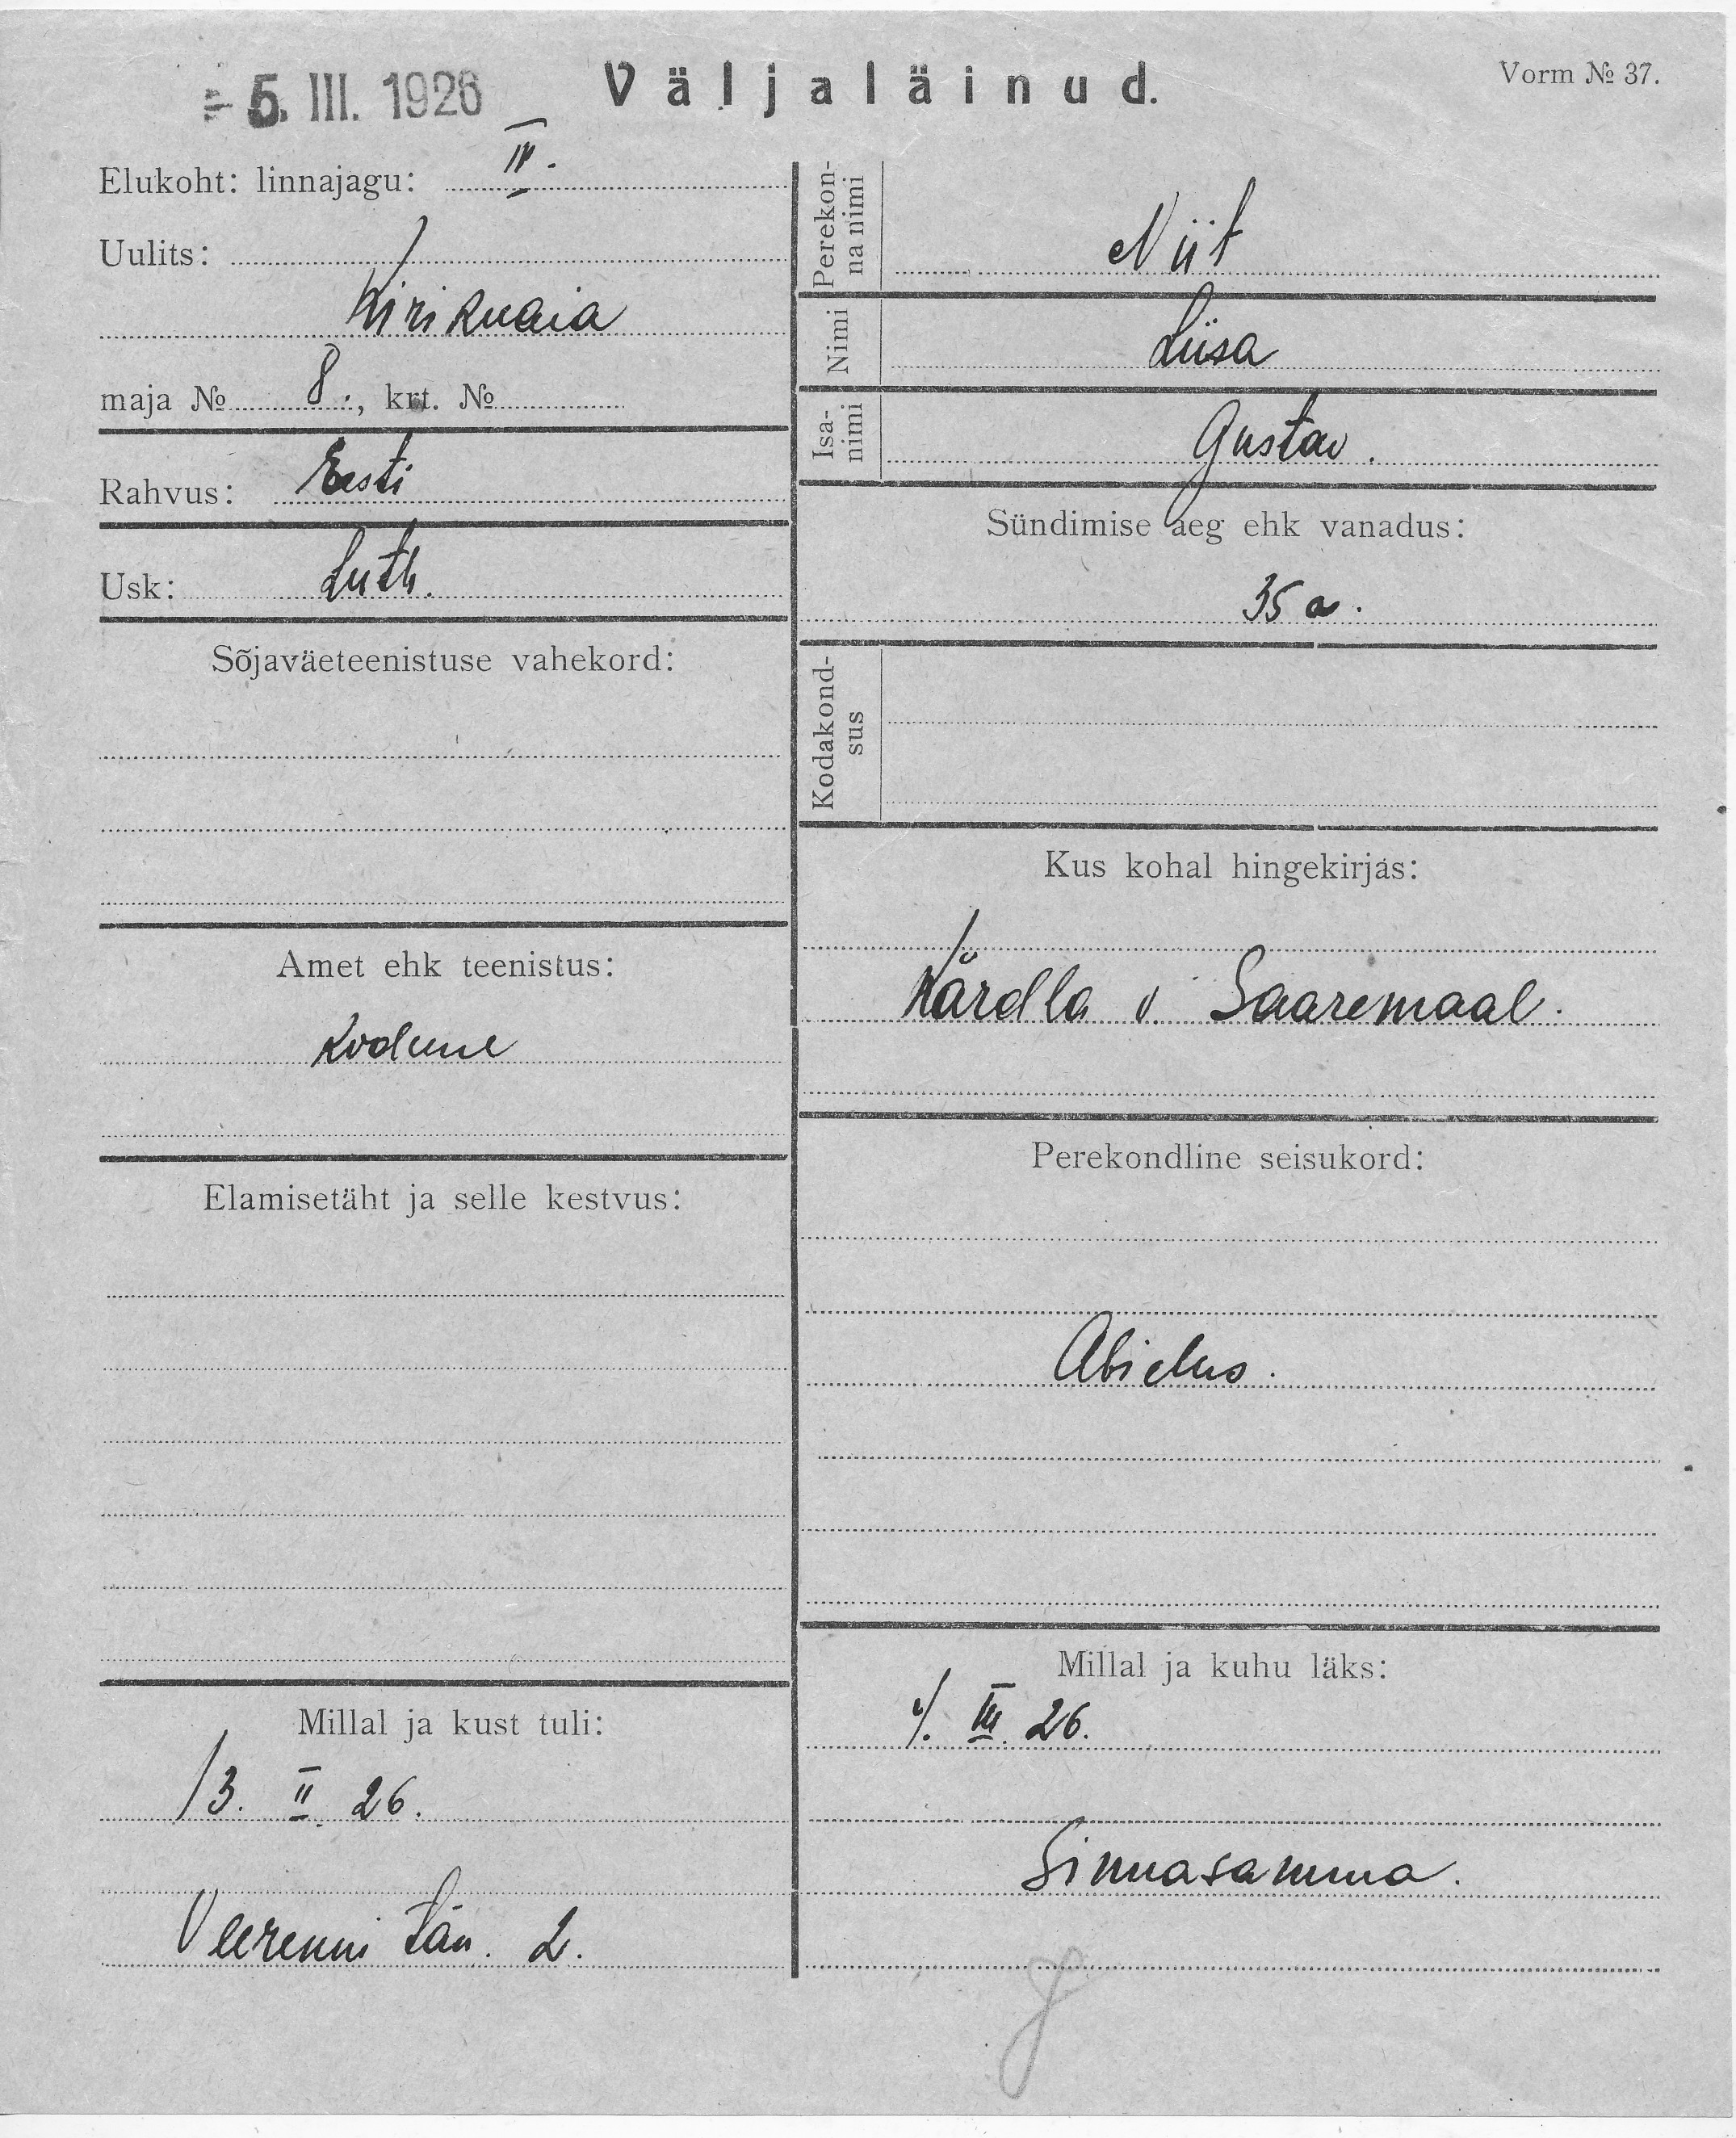 - 5. III. 1926
Väljaläinud.
Vorm № 37.
Elukoht: linnajagu: IV.
Uulits:
Kirikuaia
maja № 8., krt. №
Rahvus: Eesti
Usk: Luth.
Sõjaväeteenistuse vahekord:
Amet ehk teenistus:
Kodune
Elamisetäht ja selle kestvus:
Millal ja kust tuli:
13. II. 26.
Veerenni tän. 2.
Perekon-
na nimi
Niit
Nimi
Liisa
Isa-
nimi
Gustav.
Sündimise aeg ehk vanadus:
35 a.
Kodakond-
sus
Kus kohal hingekirjas:
Kärdla v. Saaremaal.
Perekondline seisukord:
Abielus.
Millal ja kuhu läks:
III. 26.
Sinnasamma.